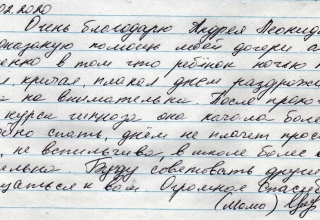 02.2020
Очень благодарю Андрея Леонид
оказаную помощь моей дочери а
енно в том что ребёнок ночью п
л, кричал, плакал днём наздрожи
а не внимательна. После прохо
курса гипноза она начала боле
йно спать, днём не плачет прос
, не вспыльчива, в школе более в
тельна. Буду советовать други
щаться к вам. Огромное спасиб
(мама)